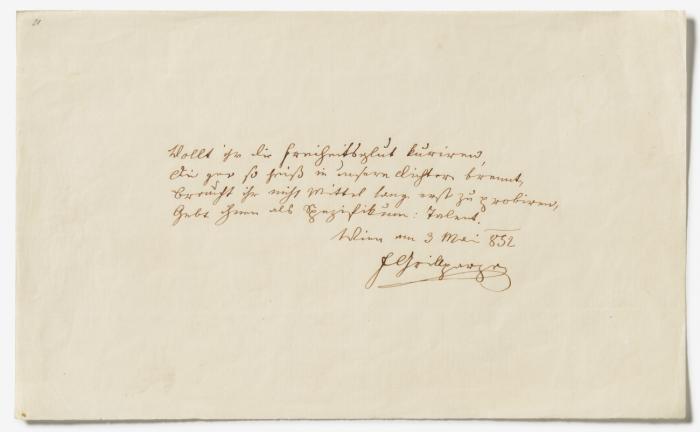 21
Wollt ihr die Freiheitsglut kuriren,
Die gar so heiß in unsern Dichtern brennt,
Braucht ihr nicht Mittel lang erst zu probiren,
Gebt ihnen als Spezifikum: Talent.
Wien am 3 Mai 852
F Grillparzer